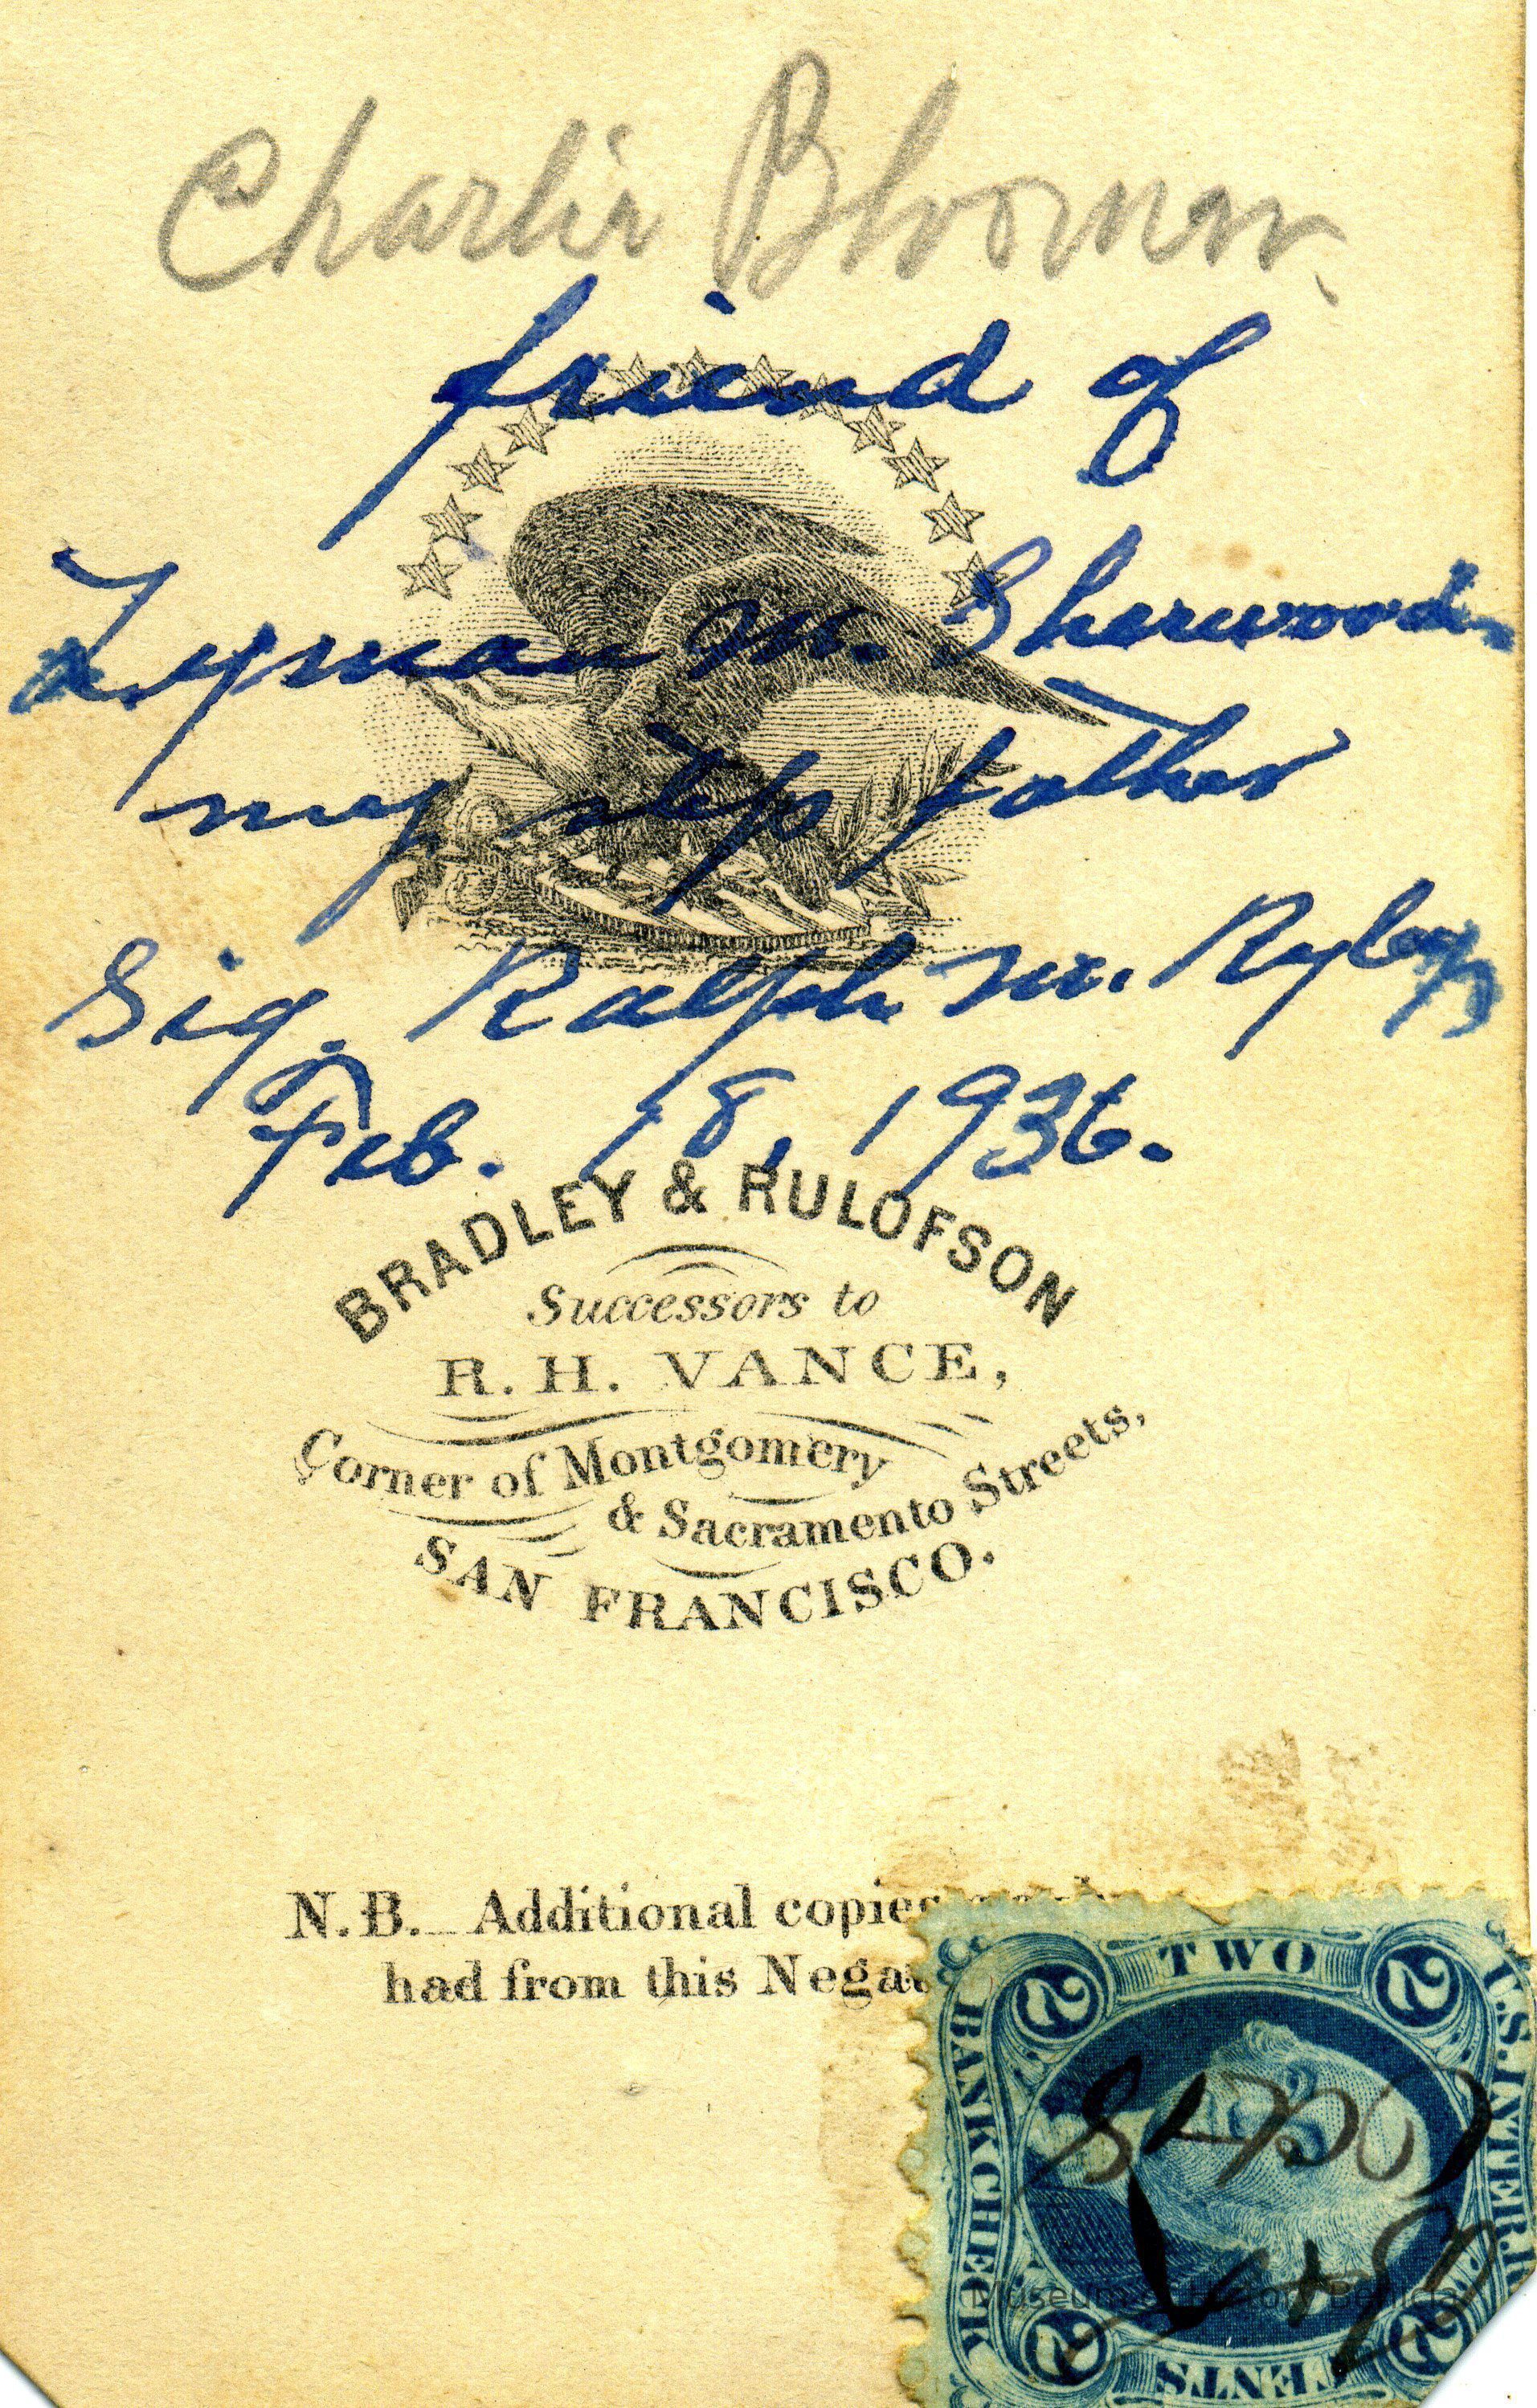 Charlie Blooman.
friend of
Lyman M. Sherwood.
my step father
Sig. Ralph M. Ryley
Feb. 18, 1936.
BRADLEY & RULOFSON
Successors to
R. H. VANCE,
Corner of Montgomery
& Sacramento Streets,
SAN FRANCISCO.
N.B. Additional copies
had from this Negat
TWO
2 2
BANK CHECK
U.S. INTER.R
2 2
CENTS
Museum of History Benicia